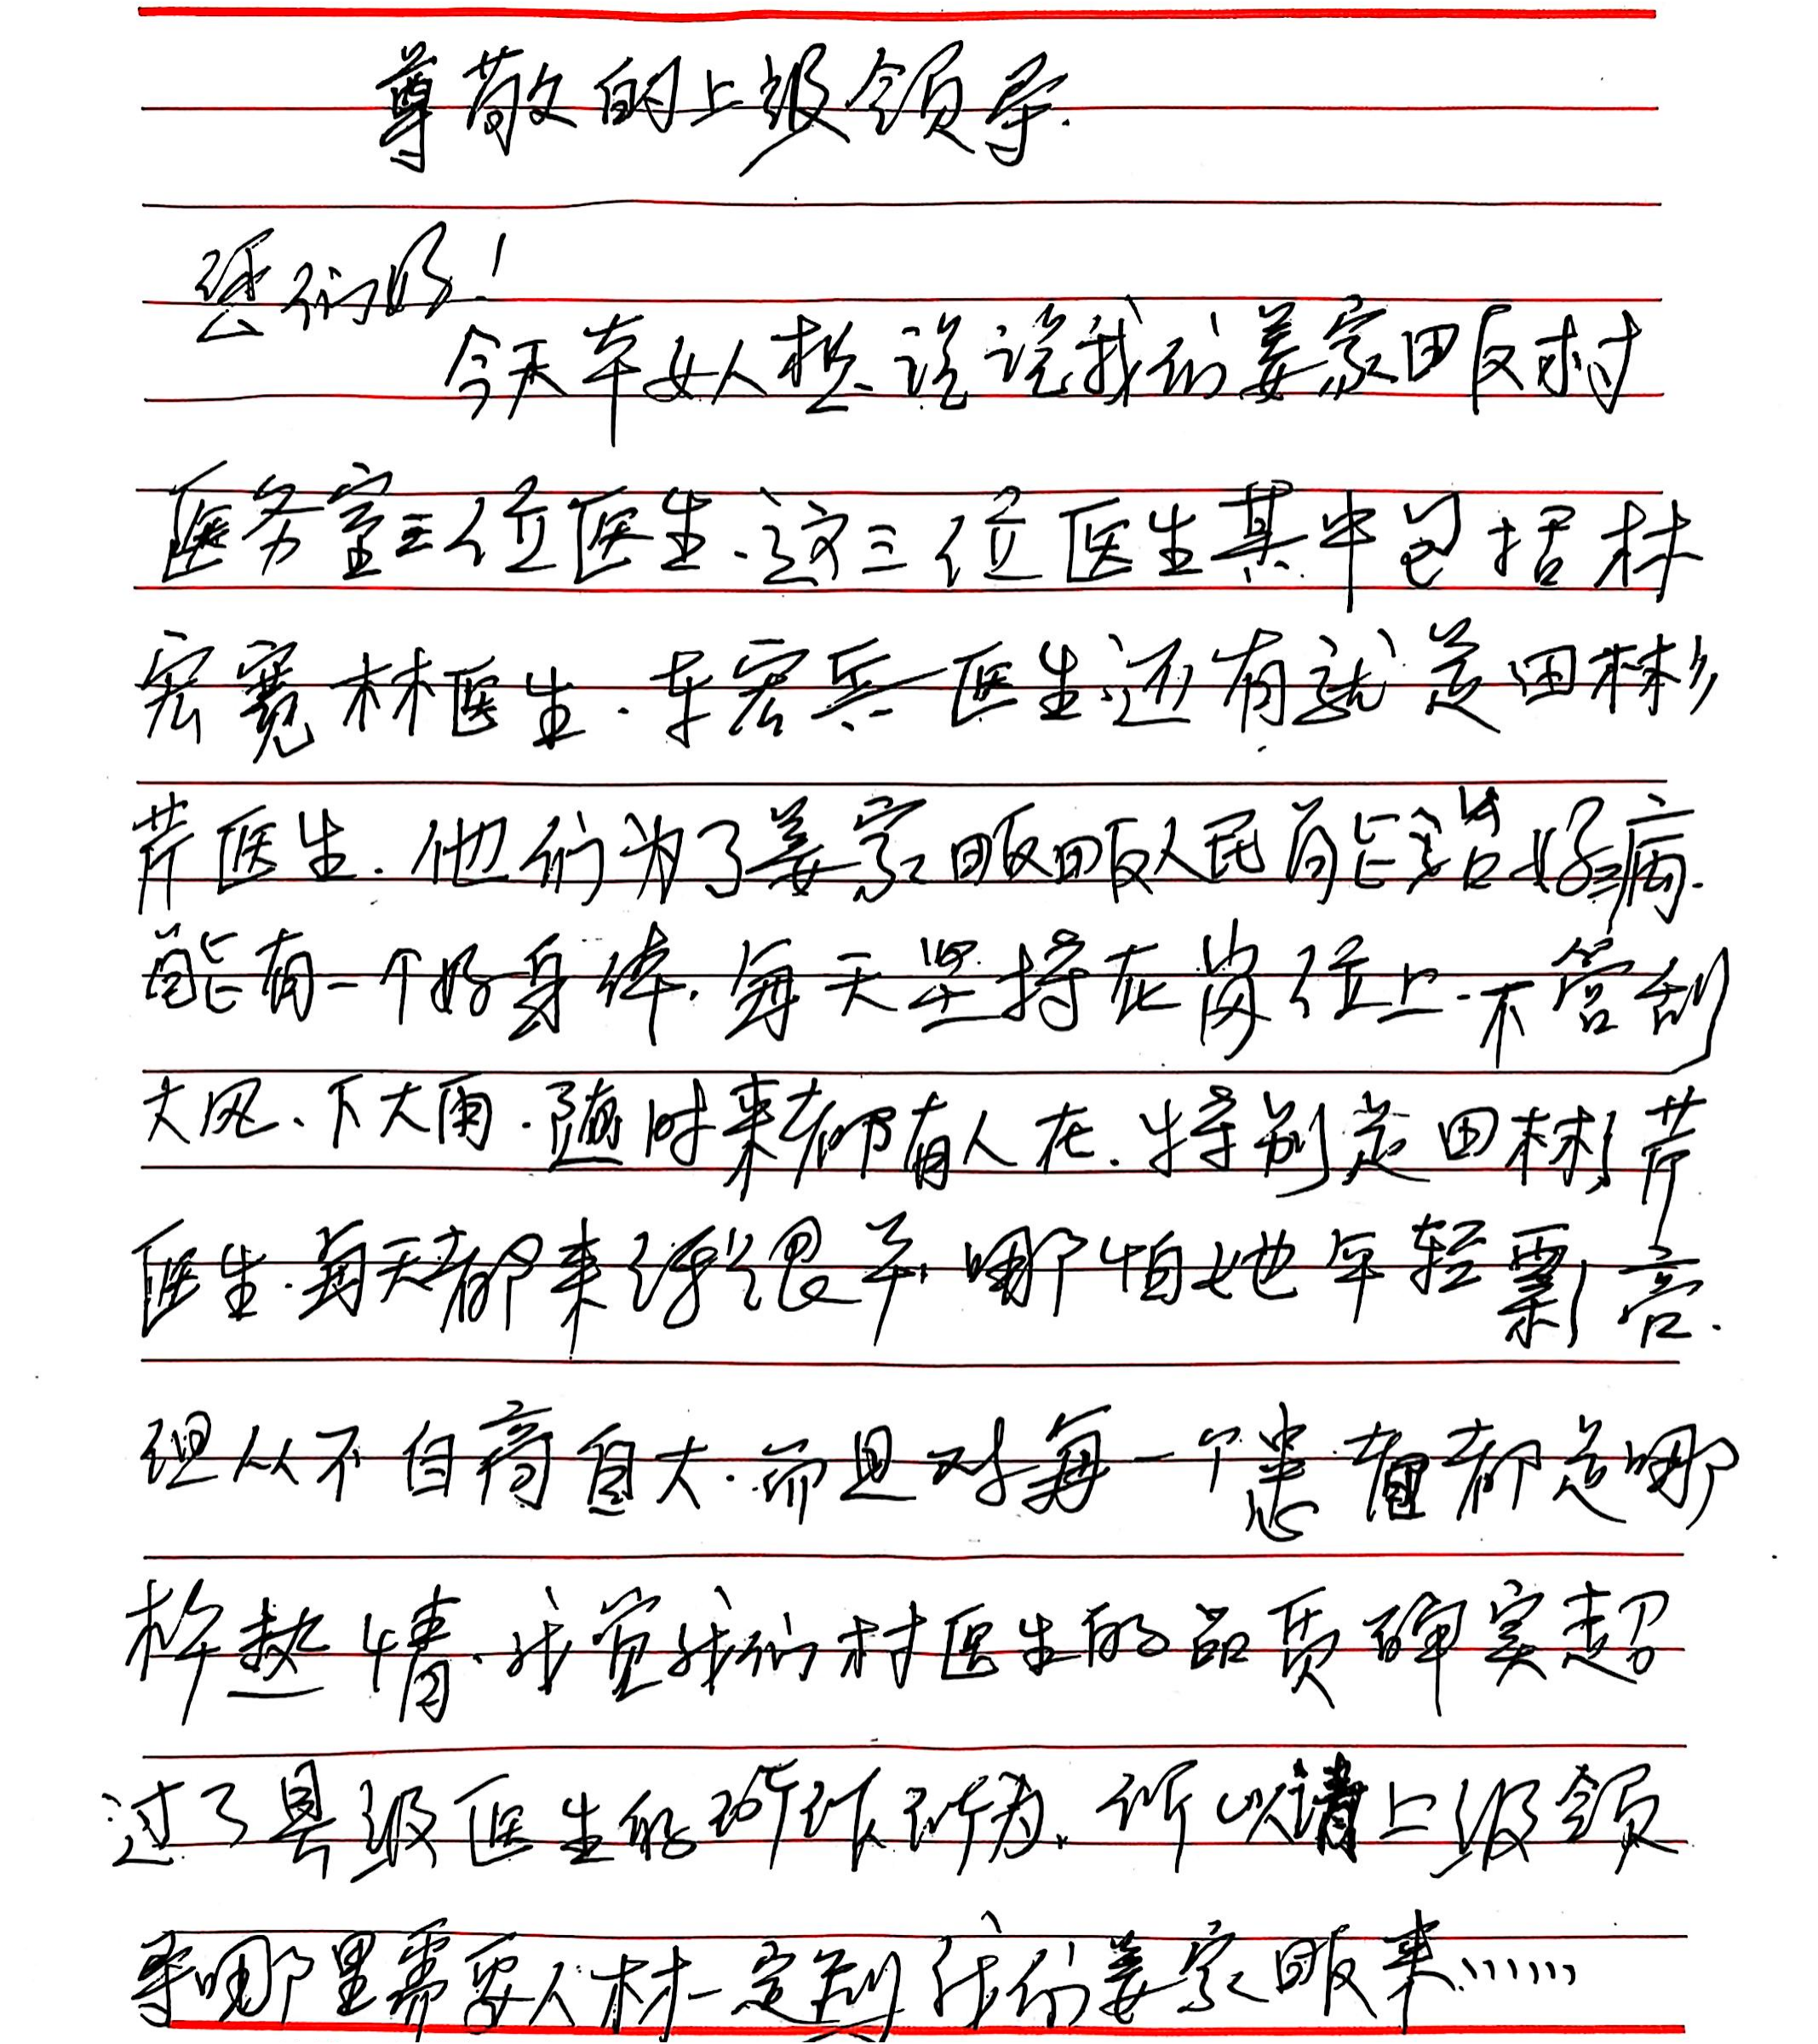 尊敬的上级领导.
您们好!
今天本女人想说说我们姜家畈村
医务室三位医生.这三位医生其中包括林
宏宽林医生.车宏兵医生还有就是田彬
芹医生.他们为了姜家畈畈人民能治好病.
能有一个好身体.每天坚持在岗位上.不管刮
大风、下大雨.随时来都有人在.特别是田彬芹
医生.每天都来得很早,哪怕她年轻漂亮.
但从不自高自大.而且对每一个患者都是哪
样热情.我觉我们村医生的品质确实超
过了县级医生的所作所为.所以请上级领
导哪里需要人材一定到我们姜家畈来……